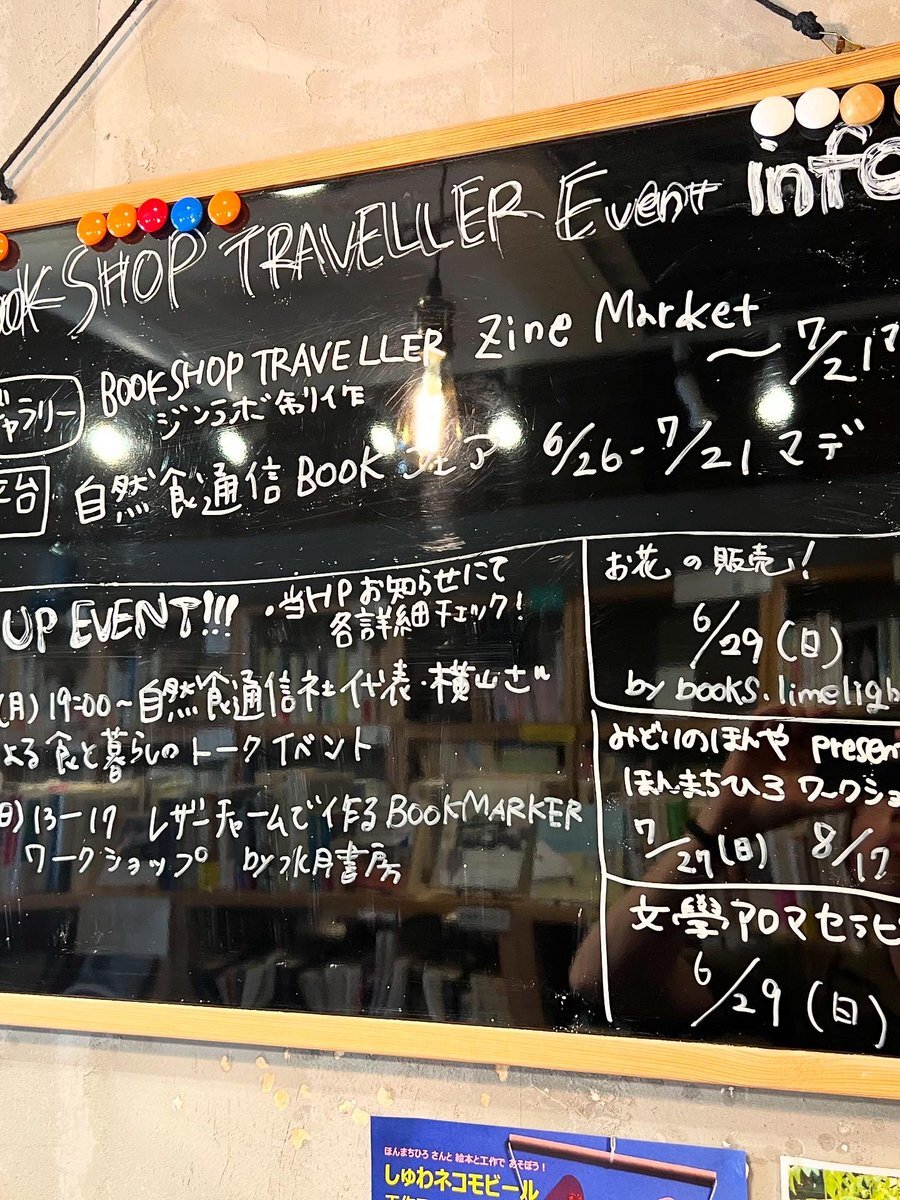 Book SHOP TRAVELLER Event info
ギャラリー BOOKSHOP TRAVELLER Zine Market
ジンラボ制作 〜7/21マ
平台 自然食通信BOOKフェア 6/26-7/21マデ
UP EVENT!!! ・当HPお知らせにて
各詳細チェック!
(月)19:00~自然食通信社代表・横山さん
よる食と暮らしのトークイベント
日)13-17 レザーチャームで作るBOOKMARKER
ワークショップ by水月書房
お花の販売!
6/29(日)
by books.limeligh
みどりのほんや presen
ほんまちひろ ワークショ
7/27(日) 8/17
文學アロマセラピ
6/29(日)
ほんまちひろさんと 絵本と工作で あそぼう!
しゅわネコモビール